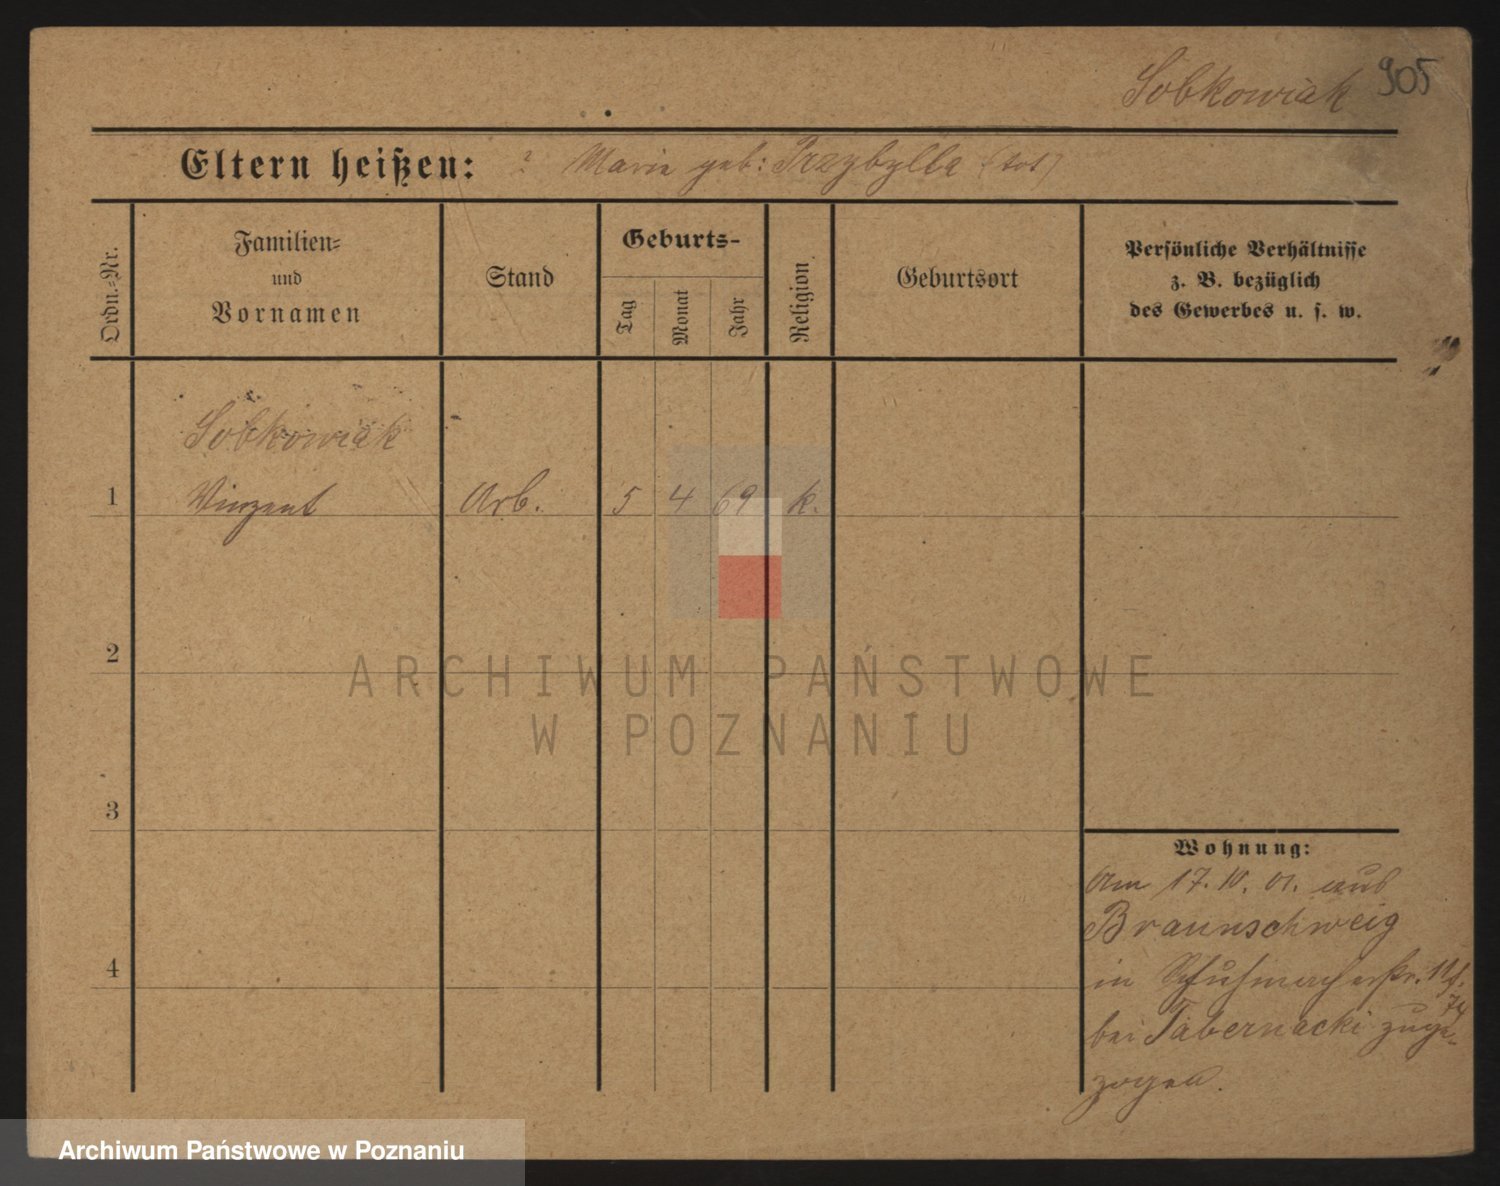 Sobkowiak 905
Eltern heißen: ? Marie geb: Przybylla (tot)
Ordn.-Nr.
Familien-
und
Vornamen
Stand
Geburts-
Tag
Monat
Jahr
Religion
Geburtsort
Persönliche Verhältnisse
z. B. bezüglich
des Gewerbes u. s. w.
Sobkowiak
1 Vinzent Arb. 5 4 69 k.
2
3
4
Wohnung:
Am 17. IV. 01. aus
Braunschweig
in Schuhmacherstr. 11
bei Tabernacki zuge-
zogen.
ARCHIWUM PAŃSTWOWE
W POZNANIU
Archiwum Państwowe w Poznaniu